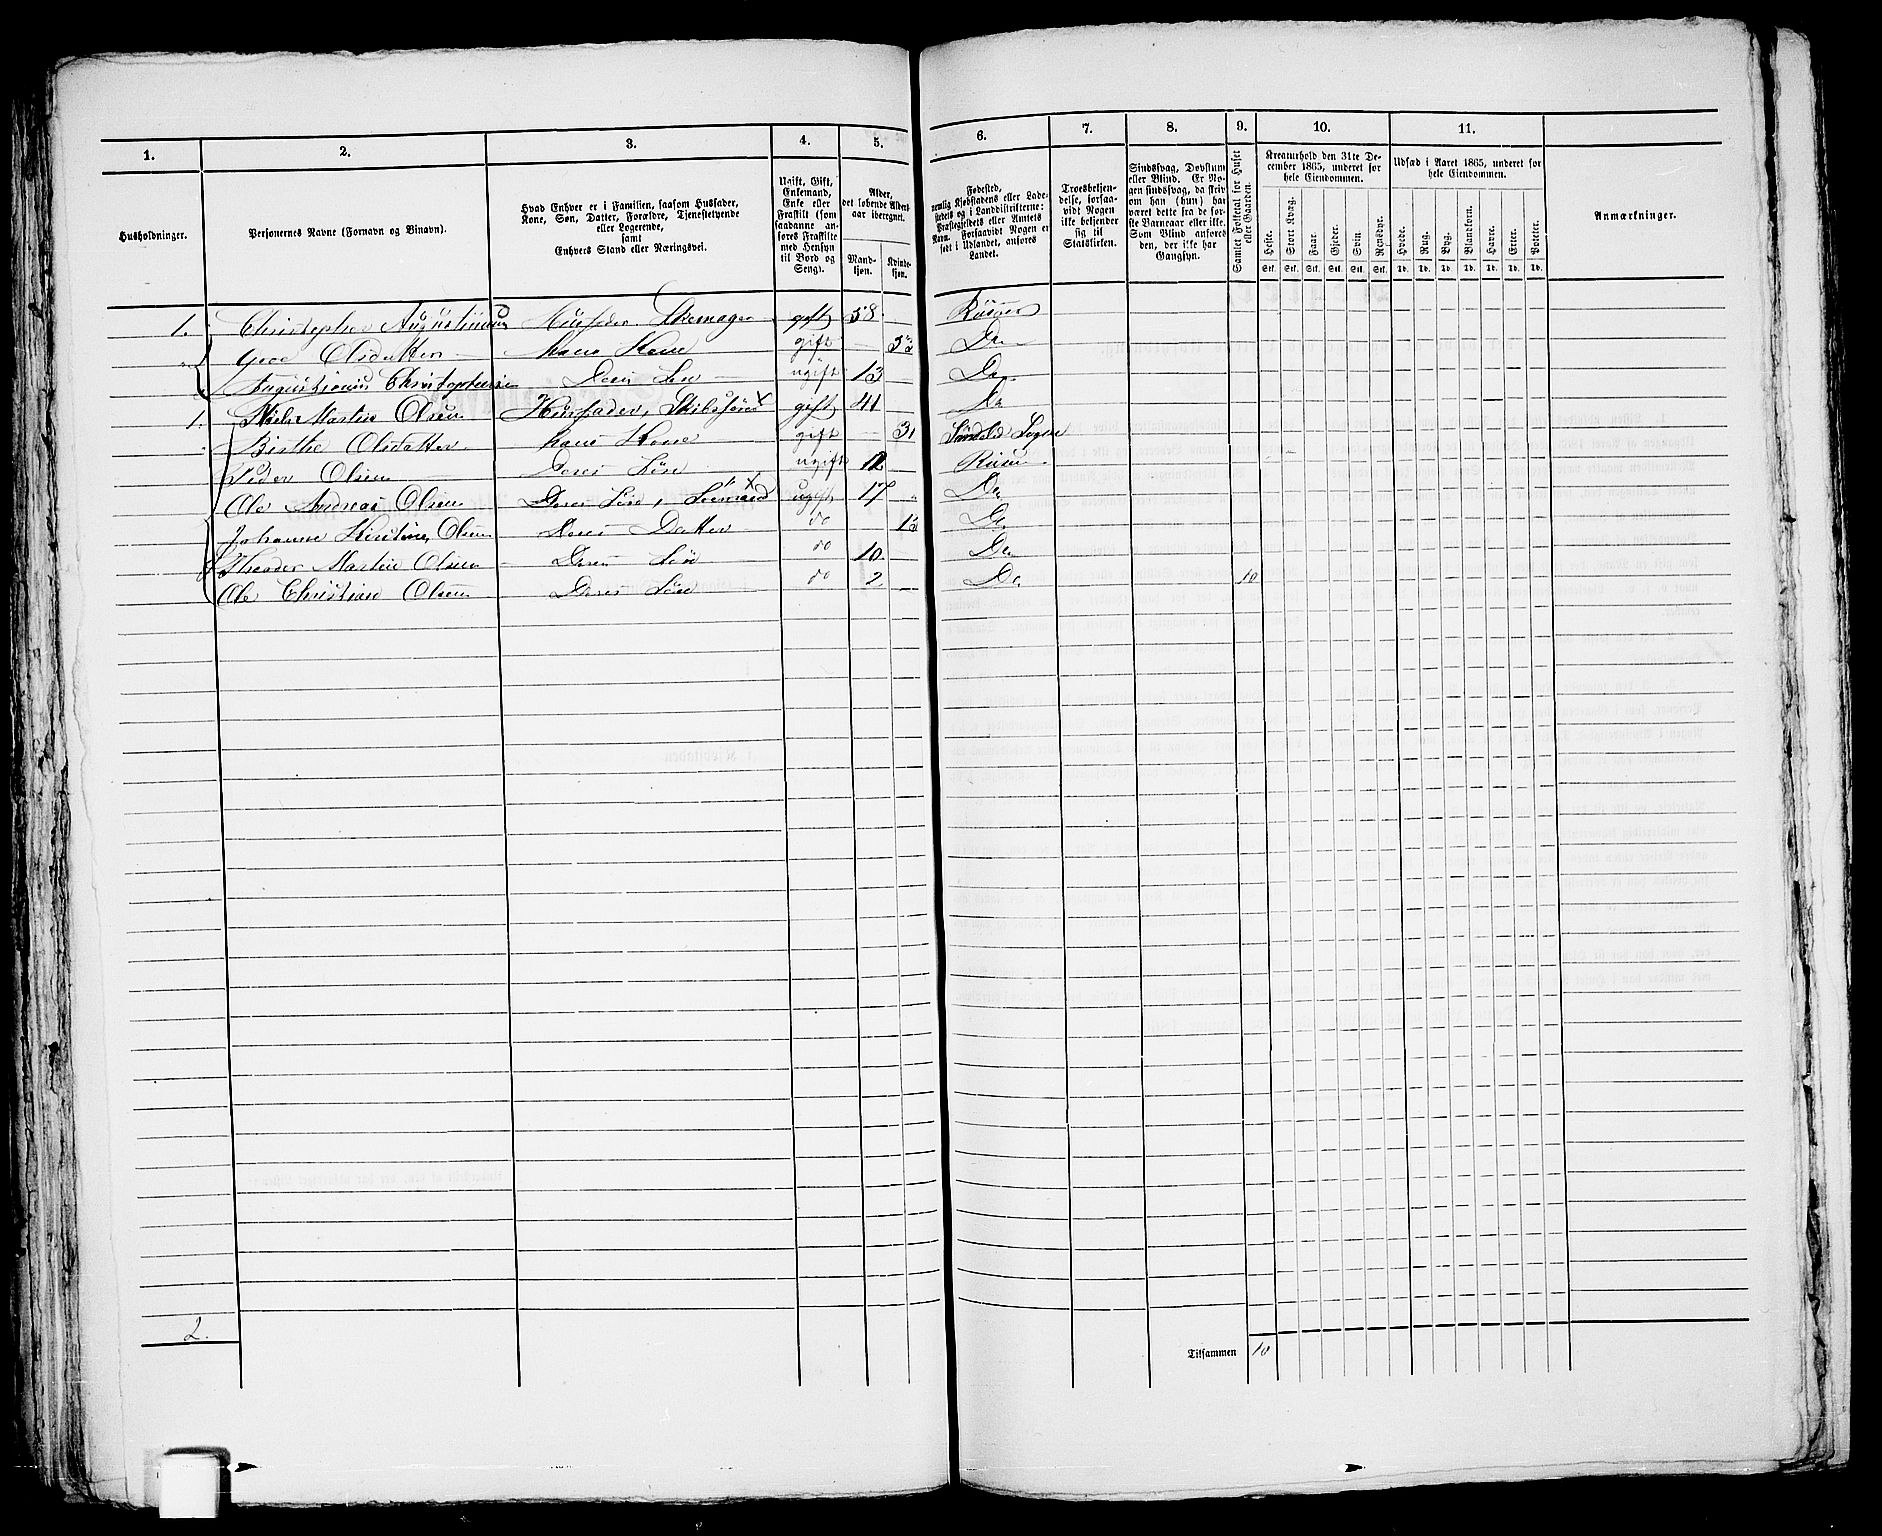 1. 2. 3. 4. 5. 6. 7. 8. 9. 10. 11.
Husholdninger.
Personernes Navne (Fornavn og Binavn).
Hvad Enhver er i Familien, saasom Husfader,
Kone, Søn, Datter, Forældre, Tjenestetyende
eller Logerende,
samt
Enhvers Stand eller Næringsvei.
Ugift, Gift,
Enkemand,
Enke eller
Fraskilt (som
saadanne an-
føres Fraskilte
med Hensyn
til Bord og
Seng).
Alder,
det løbende Alders-
aar iberegnet.
Mand-
kjøn.
Kvinde-
kjøn.
Fødested,
nemlig Kjøbstadens eller Lade-
stedets og i Landdistrikterne:
Præstegjeldets eller Amtets
Navn. Forsaavidt Nogen er
født i Udlandet, anføres
Landet.
Troesbekjen-
delse, forsaa-
vidt Nogen
ikke bekjender
sig til
Statskirken.
Sindssvag, Døvstum
eller Blind. Er No-
gen sindssvag, da skriv
om han (hun) har
været dette fra de før-
ste Barneaar eller ikke.
Som Blind anføres
den, der ikke har
Gangsyn.
Samlet Folketal for Huset
eller Gaarden.
Kreaturhold den 31te De-
cember 1865, underet for
hele Eiendommen.
Heste. Stort Kvæg. Faar. Gjeder. Sviin. Rensdyr.
Stk. Stk. Stk. Stk. Stk. Stk.
Udsæd i Aaret 1865, underet for
hele Eiendommen.
Hvede. Rug. Byg. Blandkorn. Havre. Erter. Poteter.
Td. Td. Td. Td. Td. Td. Td.
Anmærkninger.
1. Christopher Augustinusen Huusfader Skomager gift 58 Risøer
Olsdatter hans Kone gift Do
Augustinus Christophersen Deres Søn ugift 13 Do
1. Niels Martin Olsen Huusfader, Skibsfører gift 41 Do
Birthe Olsdatter hans Kone gift Søndeled Sogn
Peder Olsen Deres Søn ugift 12 Risøer
Ole Andreas Olsen Deres Søn, Sømand ugift 17 Do
Johanne Kirstine Olsen Deres Datter do Do
Theodor Martin Olsen Deres Søn do 10 Do
Ole Christian Olsen Deres Søn do 2 Do 10
2.
Tilsammen 10